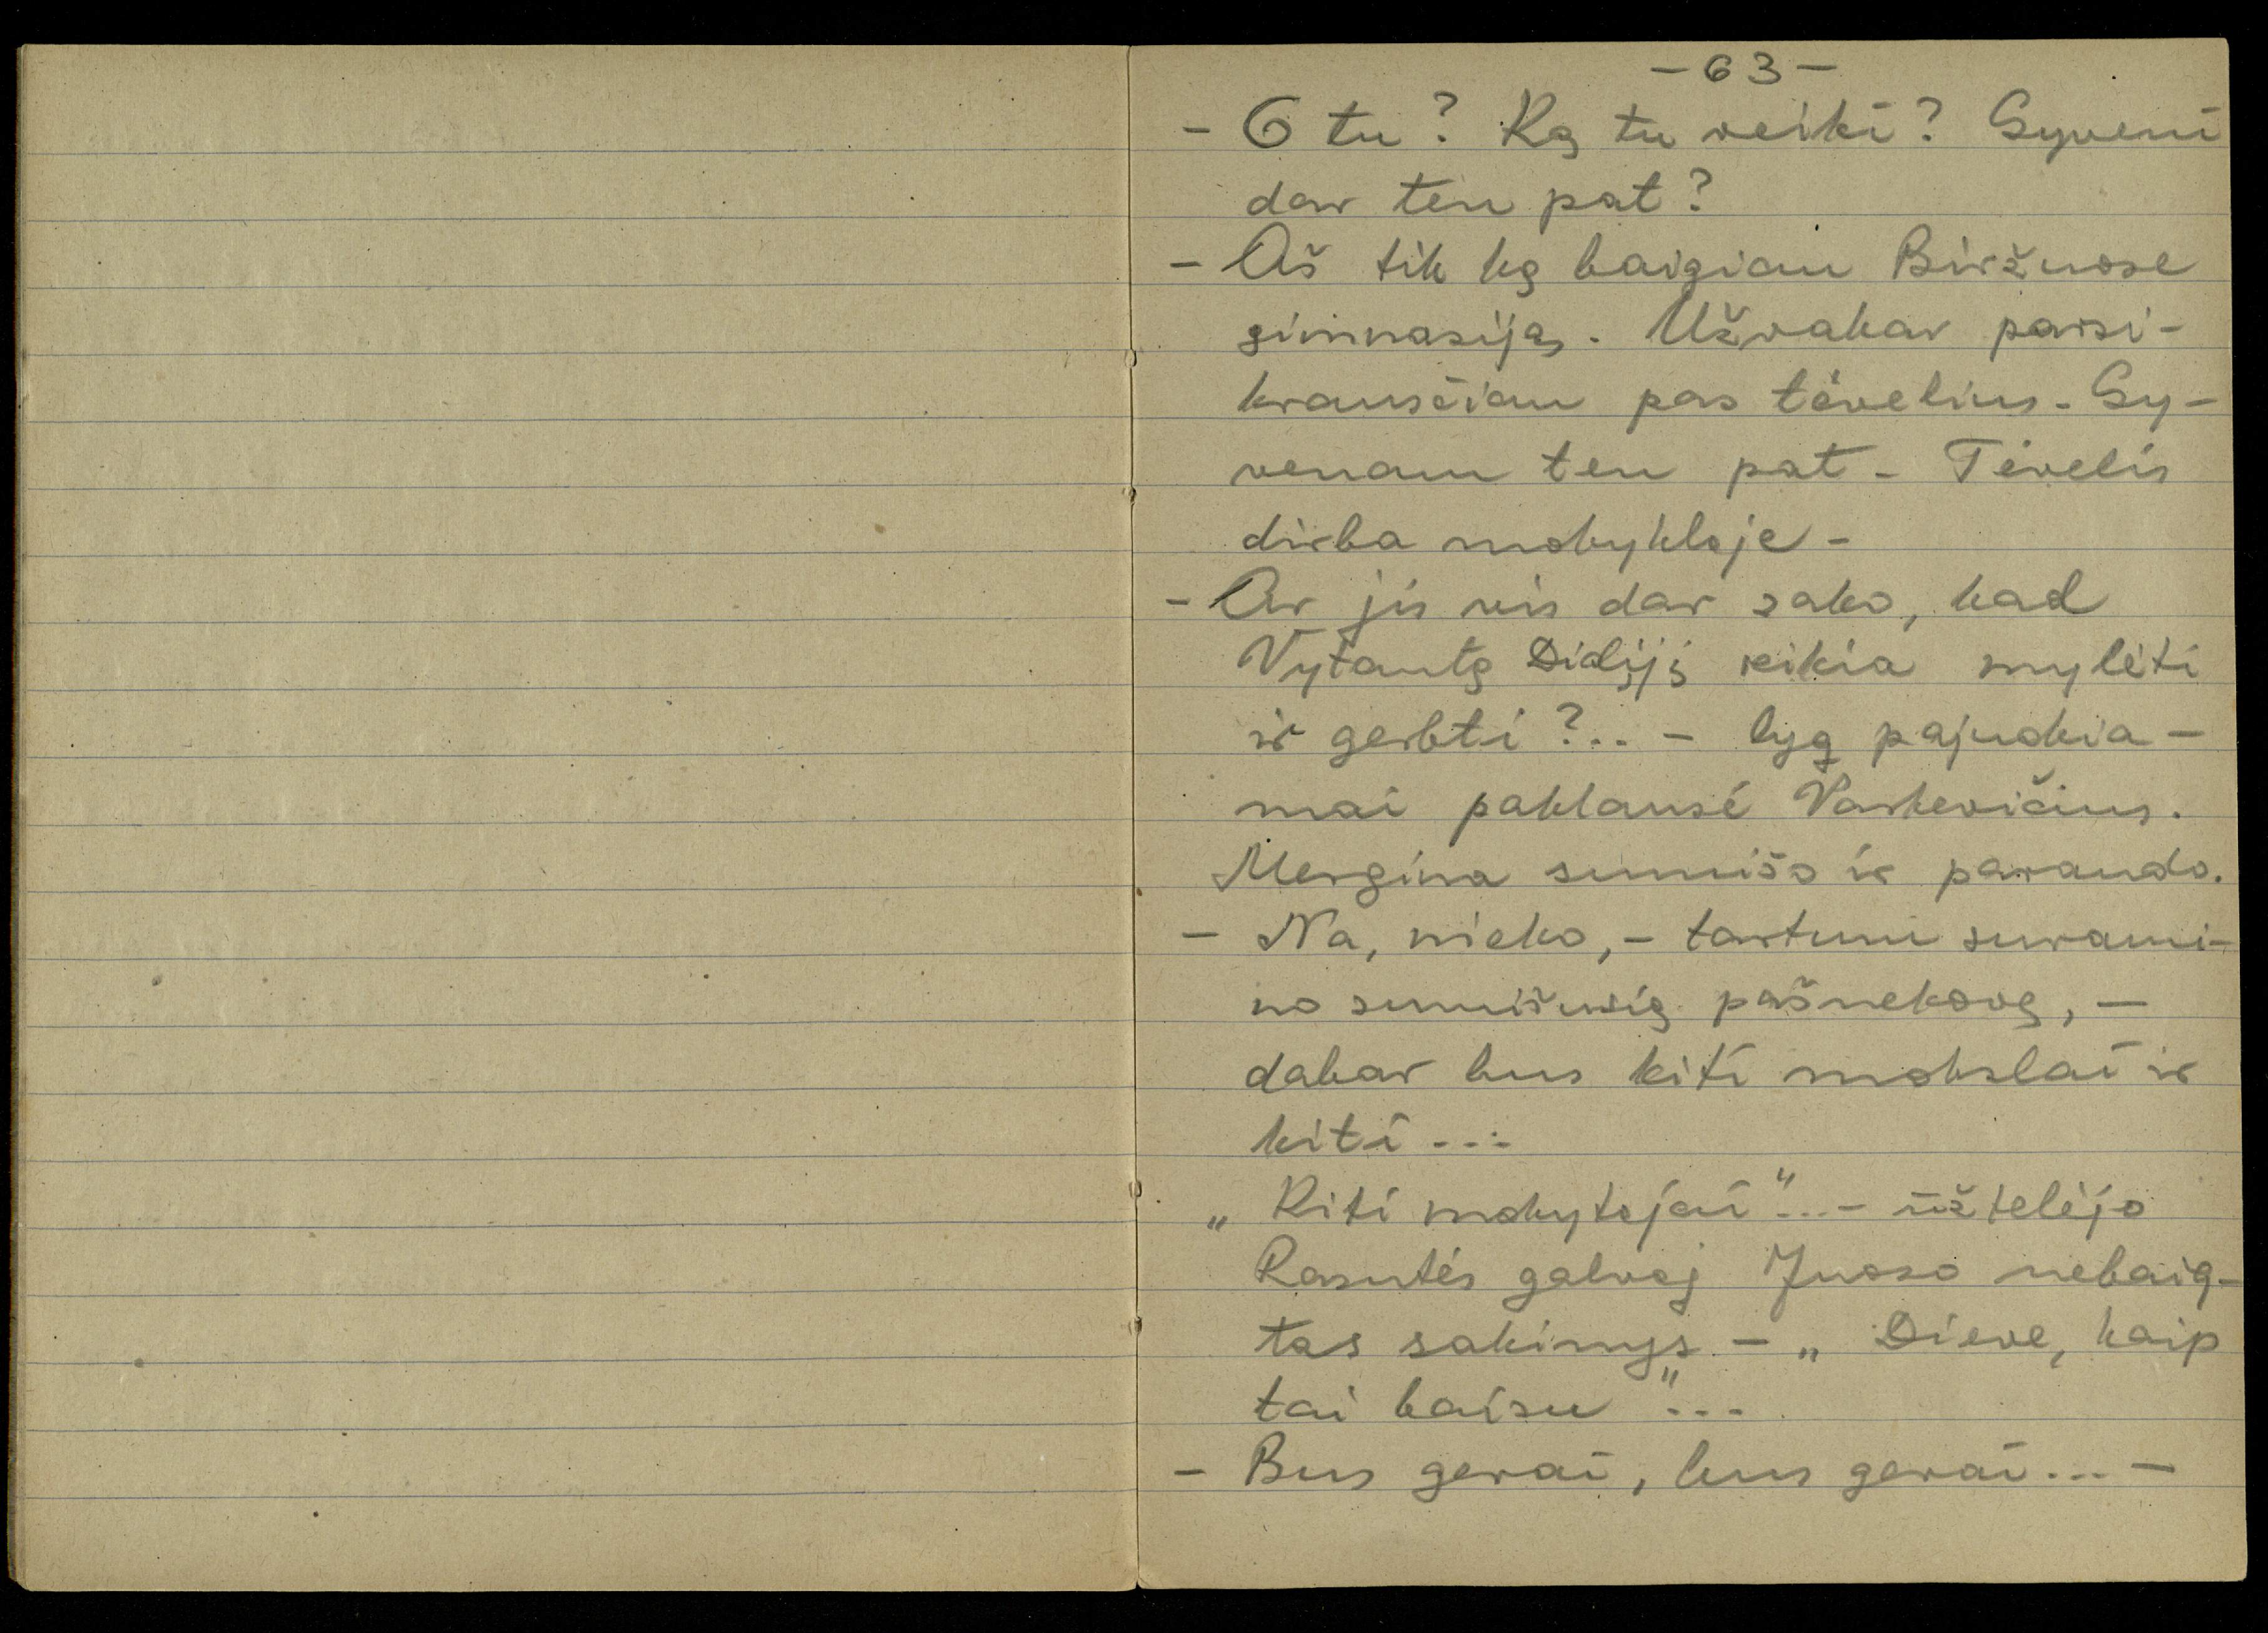 - 63 -
- O tu? Ką tu veiki? Gyveni
dar ten pat?
- Aš tik ką baigiau Biržuose
gimnaziją. Užvakar parsi-
krausčiau pas tėvelius. Gy-
venam ten pat. Tėvelis
dirba mokykloje.
- Ar jis vis dar sako, kad
Vytautą Didįjį reikia mylėti
ir gerbti?.. - lyg pajuokia-
mai paklausė Varkevičius.
Mergina sumišo ir paraudo.
- Na, nieko, - tartum surami-
no sumišusią pašnekovę, -
dabar bus kiti mokslai ir
kiti...
„Kiti mokytojai"... - ūžtelėjo
Rasutės galvoj Juozo nebaig-
tas sakinys - „Dieve, kaip
tai baisu"...
- Bus gerai, bus gerai... -